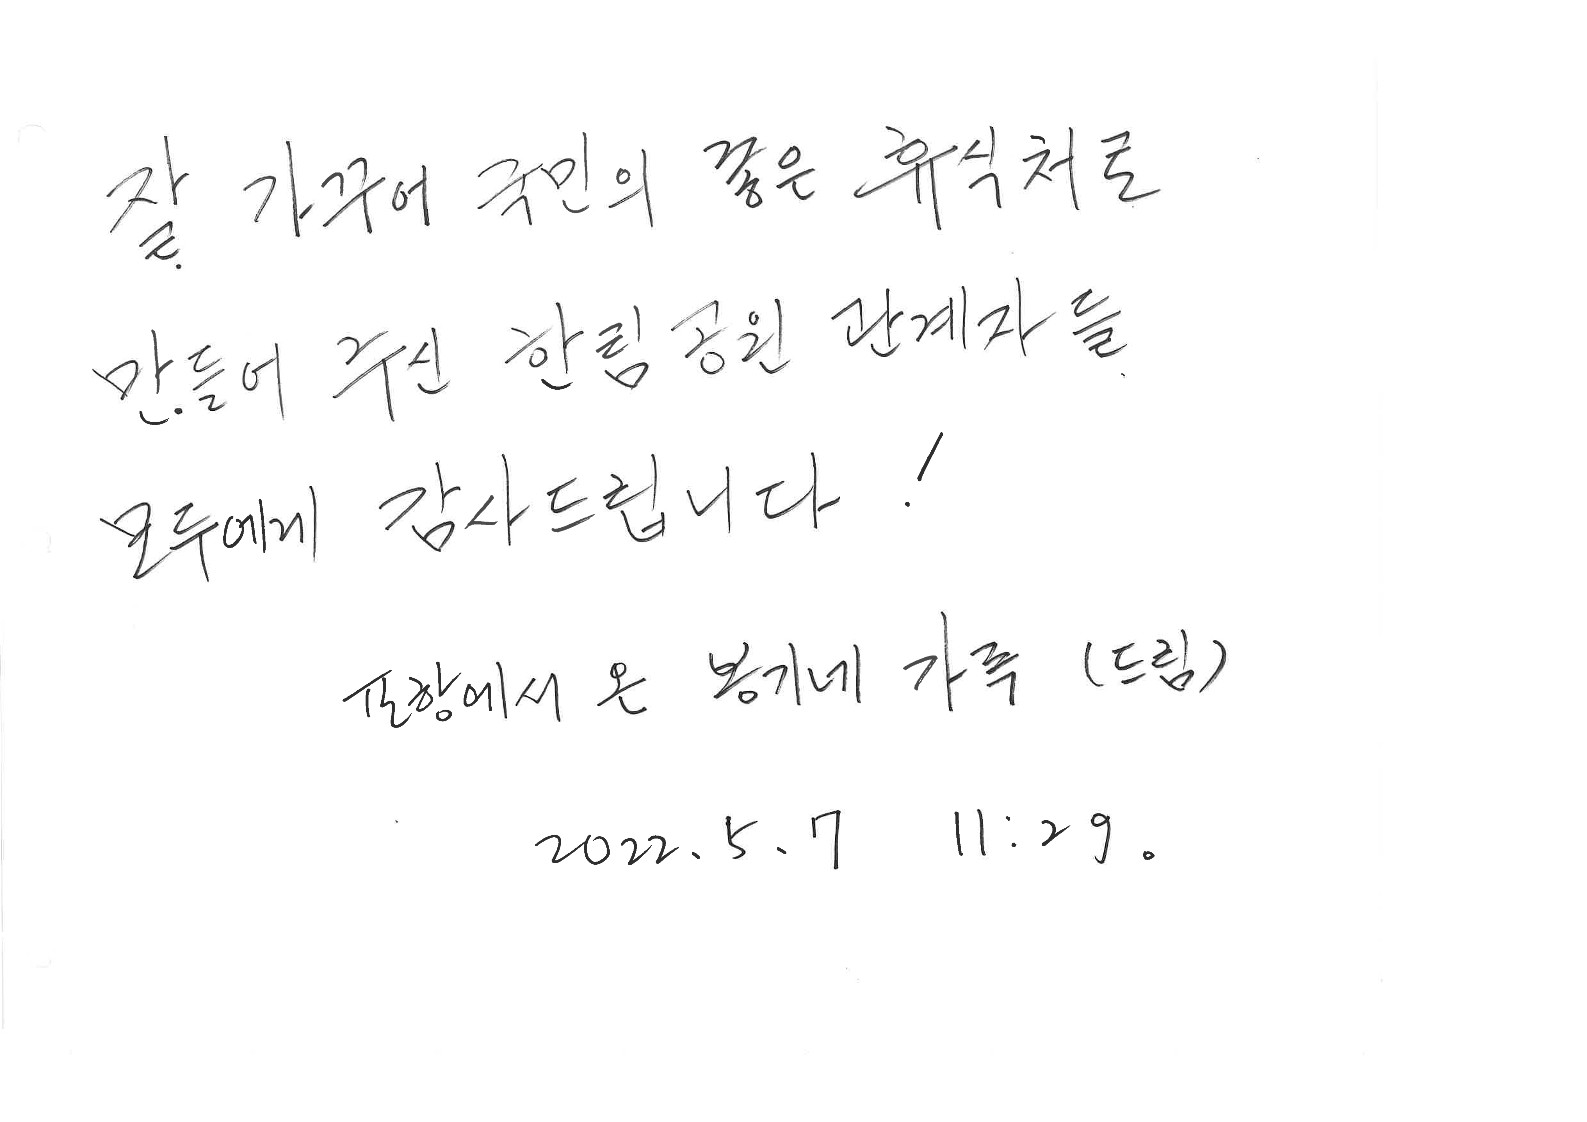 잘 가꾸어 국민의 좋은 휴식처로
만들어 주신 한림공원 관계자들
모두에게 감사드립니다!
포항에서 온 봉기네 가족 (드림)
2022.5.7 11:29.